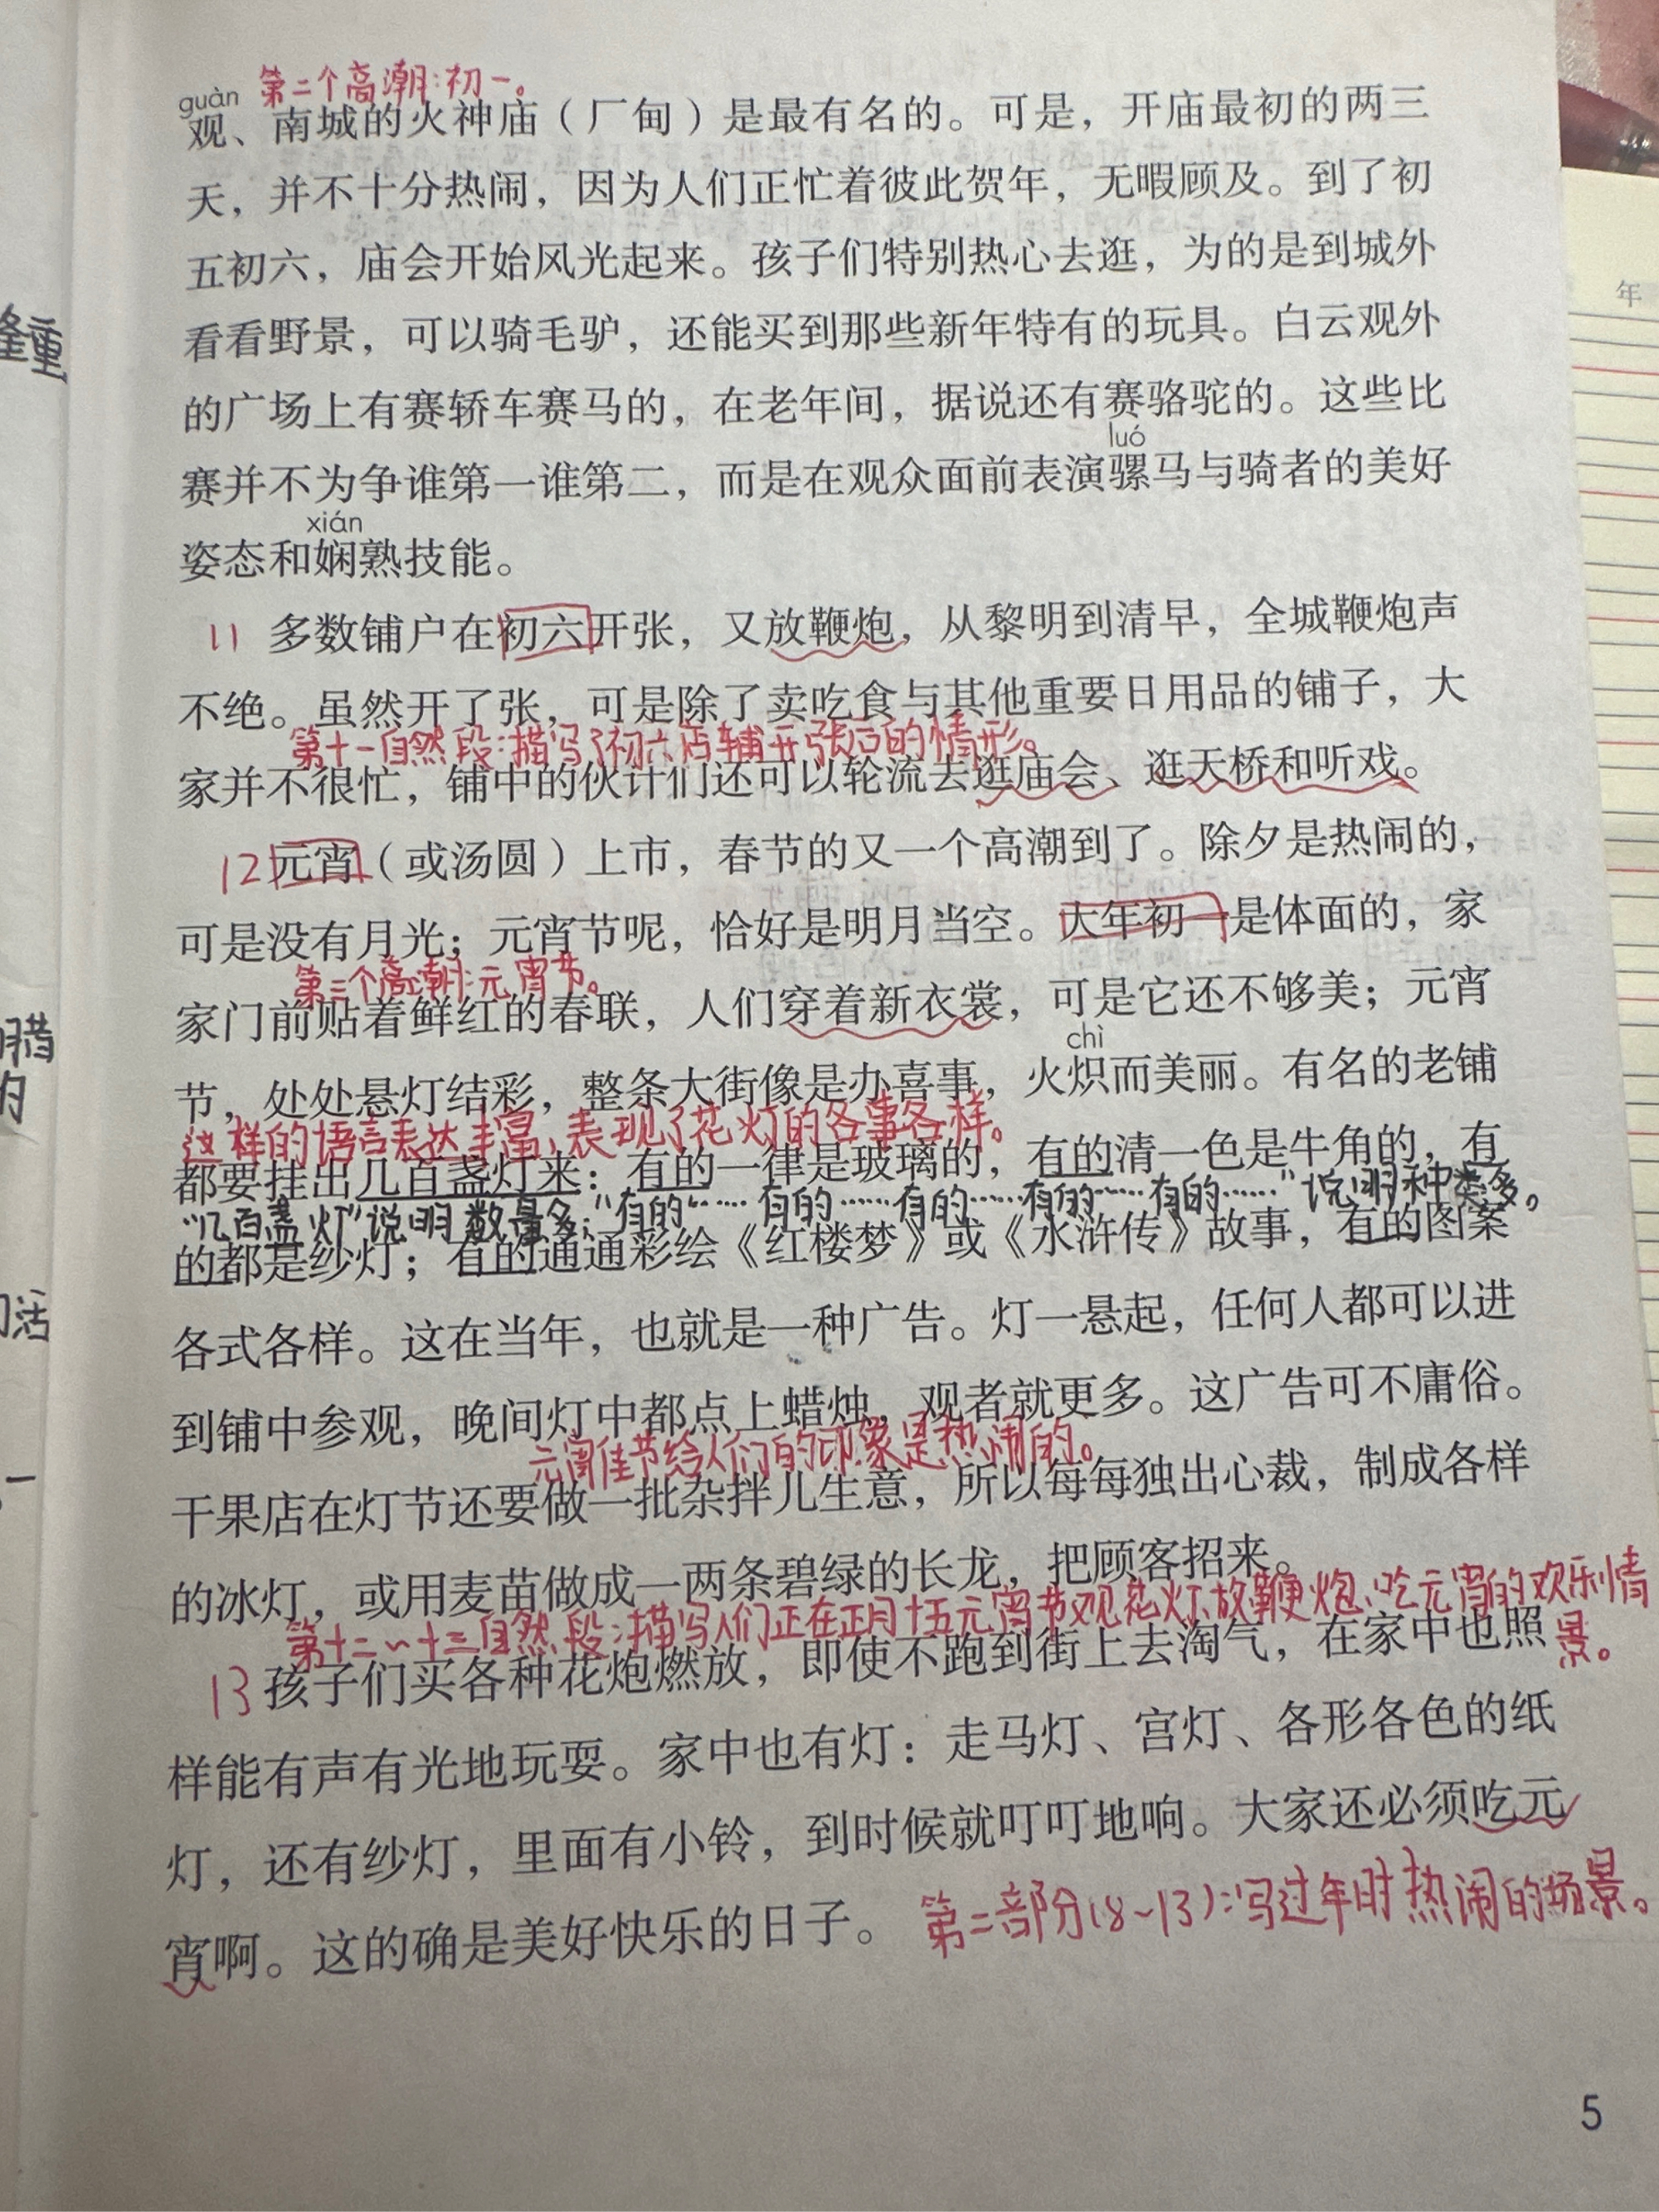 第二个高潮:初一。
guàn
观、南城的火神庙（厂甸）是最有名的。可是，开庙最初的两三
天，并不十分热闹，因为人们正忙着彼此贺年，无暇顾及。到了初
五初六，庙会开始风光起来。孩子们特别热心去逛，为的是到城外
看看野景，可以骑毛驴，还能买到那些新年特有的玩具。白云观外
的广场上有赛轿车赛马的，在老年间，据说还有赛骆驼的。这些比
luó
赛并不为争谁第一谁第二，而是在观众面前表演骡马与骑者的美好
xián
姿态和娴熟技能。
11 多数铺户在初六开张，又放鞭炮，从黎明到清早，全城鞭炮声
不绝。虽然开了张，可是除了卖吃食与其他重要日用品的铺子，大
第十一自然段:描写了初六店铺开张后的情形。
家并不很忙，铺中的伙计们还可以轮流去逛庙会、逛天桥和听戏。
12 元宵（或汤圆）上市，春节的又一个高潮到了。除夕是热闹的，
可是没有月光；元宵节呢，恰好是明月当空。大年初一是体面的，家
第三个高潮:元宵节。
家门前贴着鲜红的春联，人们穿着新衣裳，可是它还不够美；元宵
chì
节，处处悬灯结彩，整条大街像是办喜事，火炽而美丽。有名的老铺
这样的语言表达丰富,表现了花灯的各事各样。
都要挂出几百盏灯来：有的一律是玻璃的，有的清一色是牛角的，有
“几百盏灯”说明数量多;“有的……有的……有的……有的……有的……”说明种类多。
的都是纱灯；有的通通彩绘《红楼梦》或《水浒传》故事，有的图案
各式各样。这在当年，也就是一种广告。灯一悬起，任何人都可以进
到铺中参观，晚间灯中都点上蜡烛，观者就更多。这广告可不庸俗。
元宵佳节给人们的印象是热闹的。
干果店在灯节还要做一批杂拌儿生意，所以每每独出心裁，制成各样
的冰灯，或用麦苗做成一两条碧绿的长龙，把顾客招来。
第十二~十三自然段:描写人们正在正月十五元宵节观花灯、放鞭炮、吃元宵的欢乐情
景。
13 孩子们买各种花炮燃放，即使不跑到街上去淘气，在家中也照
样能有声有光地玩耍。家中也有灯：走马灯、宫灯、各形各色的纸
灯，还有纱灯，里面有小铃，到时候就叮叮地响。大家还必须吃元
宵啊。这的确是美好快乐的日子。
第二部分(8~13):写过年时热闹的场景。
腊
的
活
一
年
5